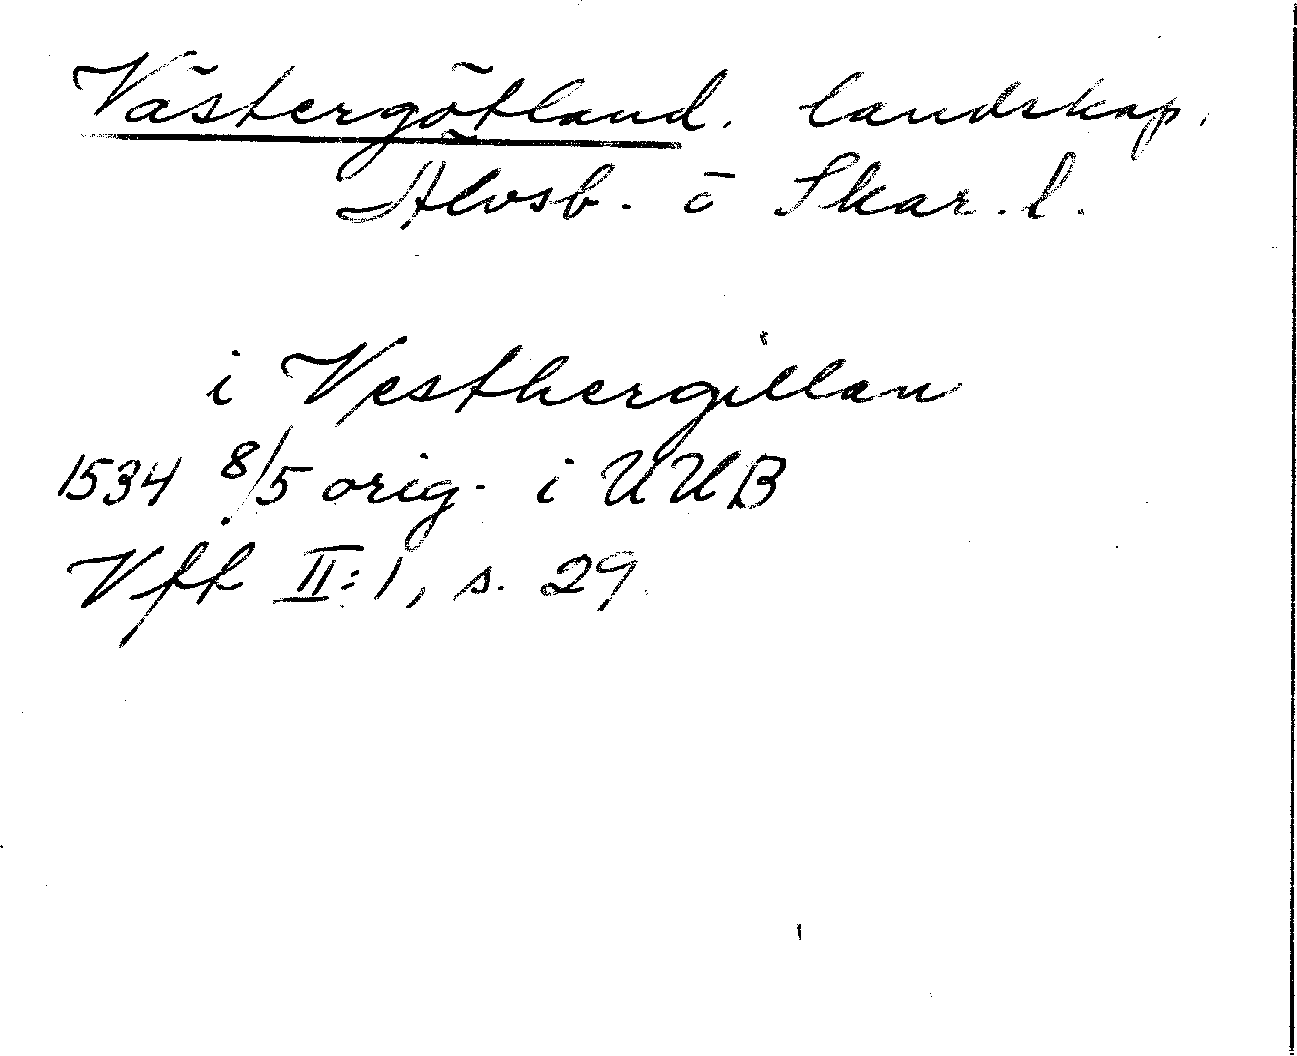 Västergötland. landskap.
Älvsb. o Skar. l.
i Vesthergillan
1534 8/5 orig. i UUB
Vff II:1, s. 29